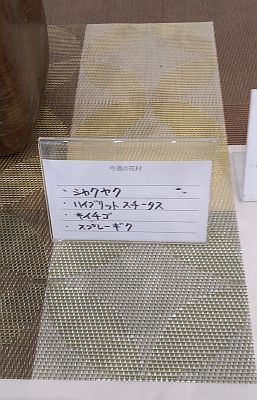 今週の花材
・シャクヤク
・ハイブリットスチータス
・キイチゴ
・スプレーギク